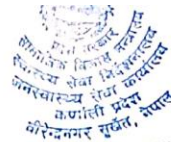 प्रदेश सरकार
सामाजिक विकास मन्त्रालय
स्वास्थ्य सेवा निर्देशनालय
जनस्वास्थ्य सेवा कार्यालय
कर्णाली प्रदेश
वीरेन्द्रनगर सुर्खेत, नेपाल